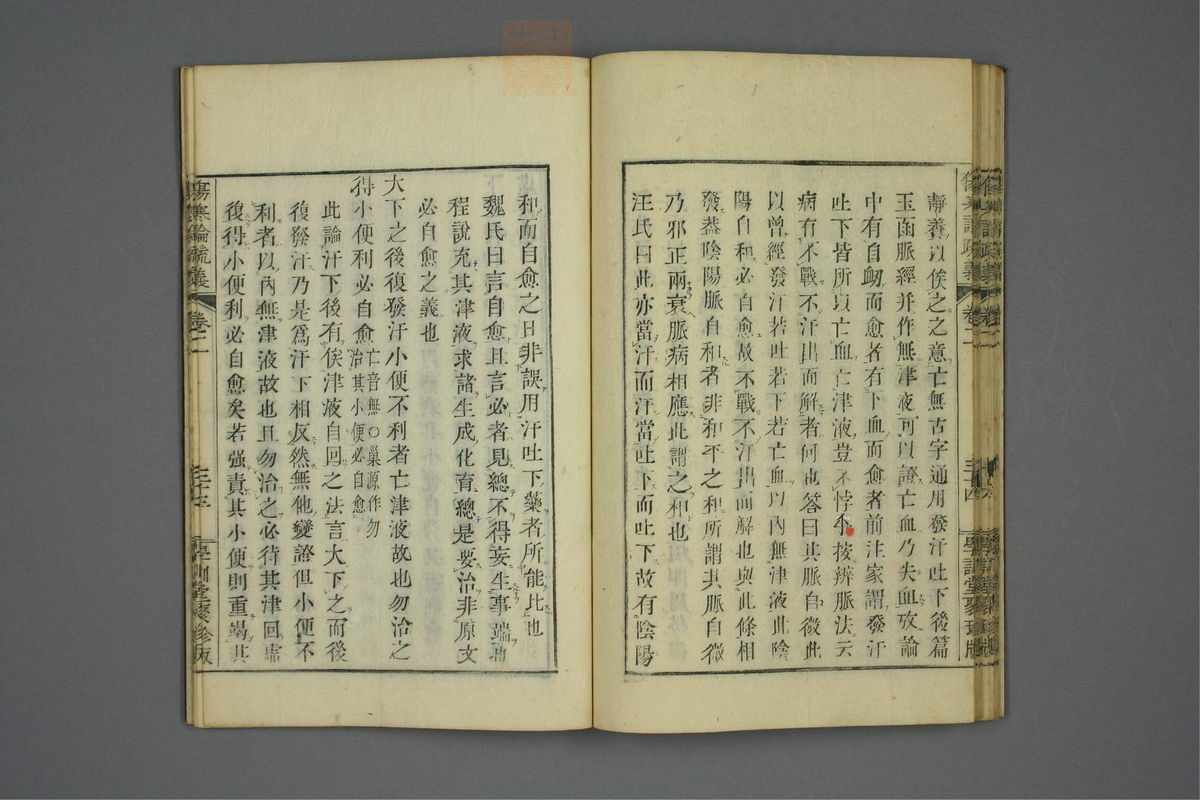 靜養以俟之之意亡無古字通用發汗吐下後篇
玉函脈經并作無津液可以證亡血乃失血攷論
中有自衂而愈者有下血而愈者前注家謂發汗
吐下皆所以亡血亡津液豈不悖乎按辨脈法云
病有不戰不汗出而解者何也答曰其脈自微此
以曾經發汗若吐若下若亡血以內無津液此陰
陽自和必自愈故不戰不汗出而解也與此條相
發蓋陰陽脈自和者非和平之和所謂其脈自微
乃邪正兩衰脈病相應此謂之和也
汪氏曰此亦當汗而汗當吐下而吐下故有陰陽
和而自愈之日非誤用汗吐下藥者所能比也
魏氏曰言自愈且言必者見總不得妄生事端
程說充其津液求諸生成化育總是要治非原文
必自愈之義也
大下之後復發汗小便不利者亡津液故也勿治之
得小便利必自愈亡音無○巢源作勿治其小便必自愈
此論汗下後有俟津液自回之法言大下之而後
復發汗乃是爲汗下相反然無他變證但小便不
利者以內無津液故也且勿治之必待其津回
復得小便利必自愈矣若强責其小便則重竭其
傷寒論疏義
卷二
學訓堂聚珍版